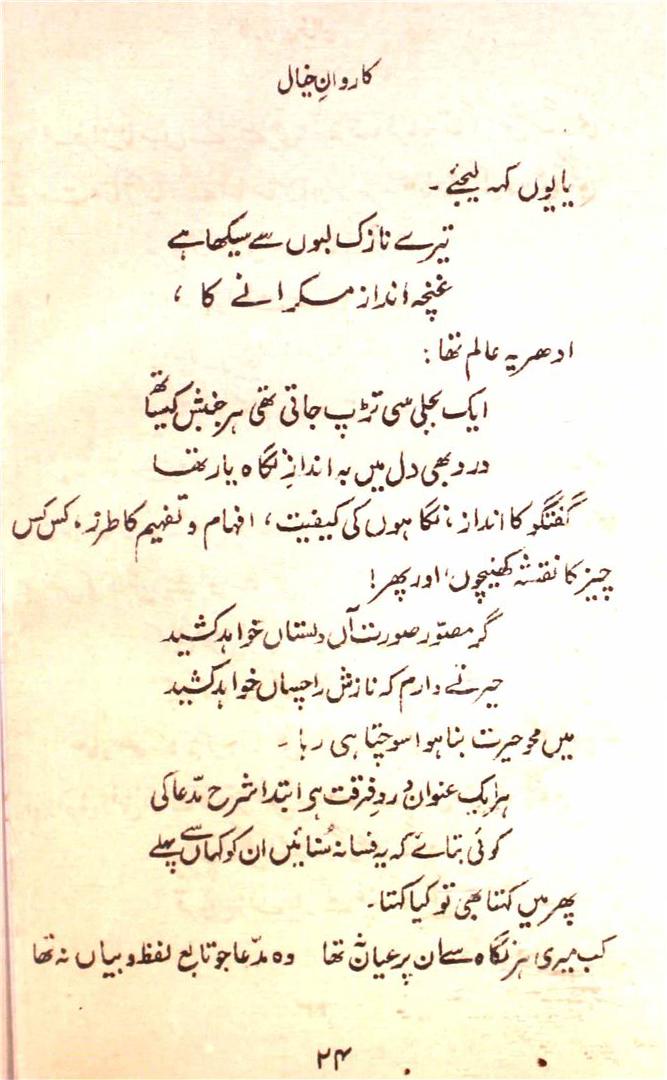 کاروانِ خیال
یا یوں کہہ لیجئے ۔
تیرے نازک لبوں سے سیکھا ہے
غنچہ انداز مسکرانے کا ،
ادھر یہ عالم تھا :
ایک بجلی سی تڑپ جاتی تھی ہر جنبش کیساتھ
درد بھی دل میں بہ اندازِ نگاہ یار تھا
گفتگو کا انداز ، نگاہوں کی کیفیت ، افہام و تفہیم کا طرز ، کس کس
چیز کا نقشہ کھینچوں ، اور پھر !
گر مصوّر صورت آں دلستاں خواہد کشید
حیرتے دارم کہ نازش را چساں خواہد کشید
میں محو حیرت بنا ہوا سوچتا ہی رہا ۔
ہر ایک عنوان دردِ فرقت ہو ابتدا شرح مدّعا کی
کوئی بتائے کہ یہ فسانہ سُنائیں ان کو کہاں سے پہلے
پھر میں کہتا بھی تو کیا کہتا ۔
کب میری ہر نگاہ سے ان پر عیاں نہ تھا وہ مدّعا جو تابع لفظ و بیاں نہ تھا
۲۴